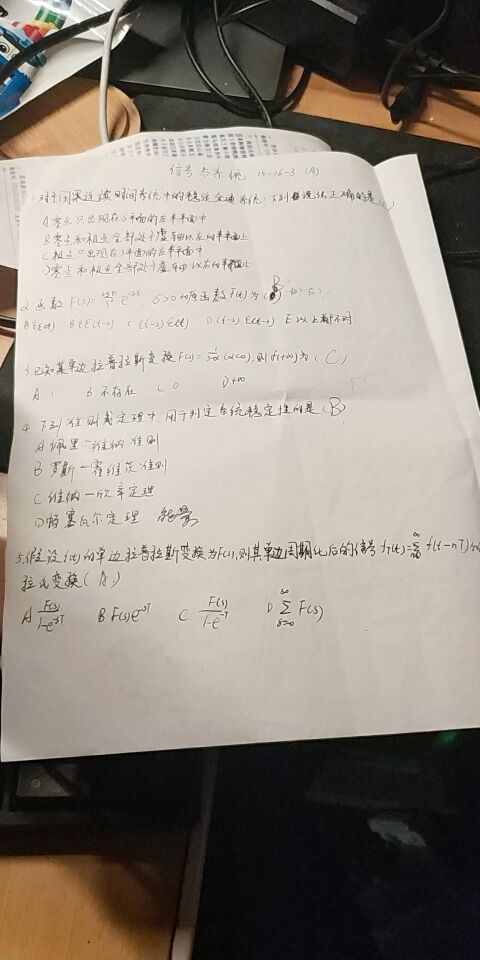 信号与系统 15-16-3 (A)
1.对于因果连续时间系统中的稳定全通系统,下列说法正确的是(
A 零点只出现在s平面的左半平面中
B 零点和极点全部处于虚轴以左的半平面上
C 极点只出现在s平面的左半平面中
D 零点和极点全部处于虚轴以右的半平面上
2.函数 F(s)= e^{-2s}, σ>0 的原函数 f(t)为 ( B )
A tε(t) B tε(t-2) C (t-2)ε(t) D (t-2)ε(t-2) E 以上都不对
3.已知某单边拉普拉斯变换 F(s)=\frac{1}{s-α}(α<0),则f(+∞)为 ( C )
A. 1 B 不存在 C 0 D +∞
4. 下列准则或定理中,用于判定系统稳定性的是 (B)
A 佩里-维纳准则
B 罗斯-霍维茨准则
C 维纳-欣辛定理
D 帕塞瓦尔定理 能量
5.假设f(t)的单边拉普拉斯变换为F(s),则其单边周期化后的信号f_T(t)=\sum_{n=0}^{∞} f(t-nT)的
拉氏变换 (A)
A \frac{F(s)}{1-e^{-sT}} B F(s)e^{-sT} C. \frac{F(s)}{1-e^{-T}} D \sum_{s=0}^{∞} F(s)